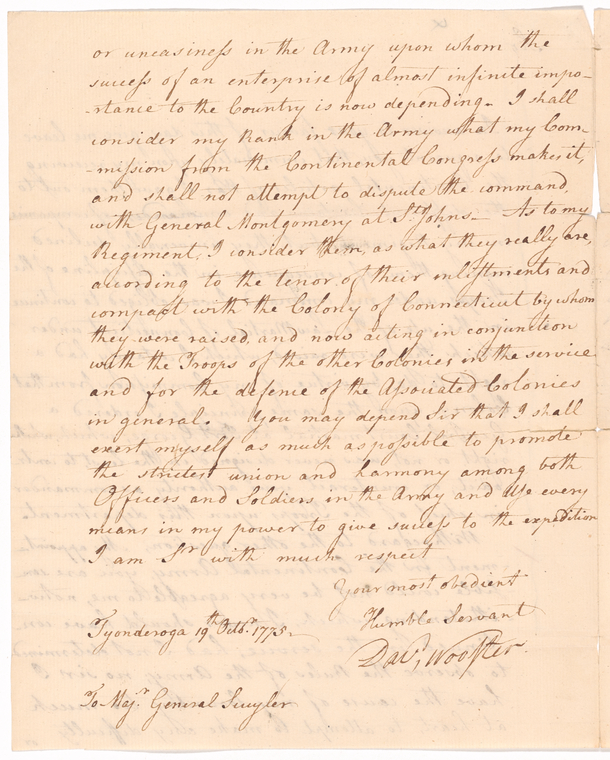 or uneasiness in the Army upon whom the
success of an enterprise of almost infinite impo-
-rtance to the Country is now depending. I shall
consider my Rank in the Army what my Com-
-mission from the Continental Congress makes it,
and shall not attempt to dispute the command,
with General Montgomery at St. Johns — As to my
Regiment, I consider them, as what they really are,
according to the tenor of their inlistments and
compact with the Colony of Connecticut by whom
they were raised, and now acting in conjunction
with the Troops of the other Colonies in the service
and for the defence of the Associated Colonies
in general. You may depend Sir that I shall
exert myself as much as possible to promote
the strictest union and harmony among both
Officers and Soldiers in the Army and Use every
means in my power to give success to the expedition
I am Sr. with much respect
Your most obedient
Humble Servant
Tyonderoga 19th Octbr. 1775
Davd. Wooster
To Majr. General Scuyler